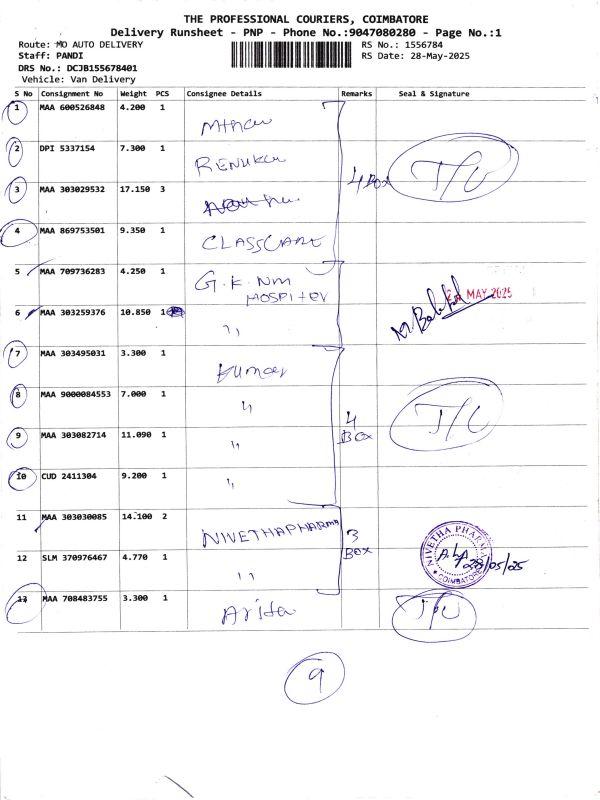 THE PROFESSIONAL COURIERS, COIMBATORE
Delivery Runsheet - PNP - Phone No.:9047080280 - Page No.:1
Route: MO AUTO DELIVERY RS No.: 1556784
Staff: PANDI RS Date: 28-May-2025
DRS No.: DCJB155678401
Vehicle: Van Delivery
S No Consignment No Weight PCS Consignee Details Remarks Seal & Signature
1 MAA 600526848 4.200 1
2 DPI 5337154 7.300 1 RENUKA
3 MAA 303029532 17.150 3 4 Box T/U
4 MAA 869753501 9.350 1 CLASSCARE
5 MAA 709736283 4.250 1 G.K.NM HOSPITEV
MAY 2025
6 MAA 303259376 10.850 1 ,,
7 MAA 303495031 3.300 1 Kumar
8 MAA 9000084553 7.000 1 ,, 4 BOX T/U
9 MAA 303082714 11.090 1 ,,
10 CUD 2411304 9.200 1 ,,
11 MAA 303030085 14.100 2 NIVETHAPHARMA 3 BOX
NIVETHA PHARMA
COIMBATORE
28/05/25
12 SLM 370976467 4.770 1 ,,
13 MAA 708483755 3.300 1 T/U
9